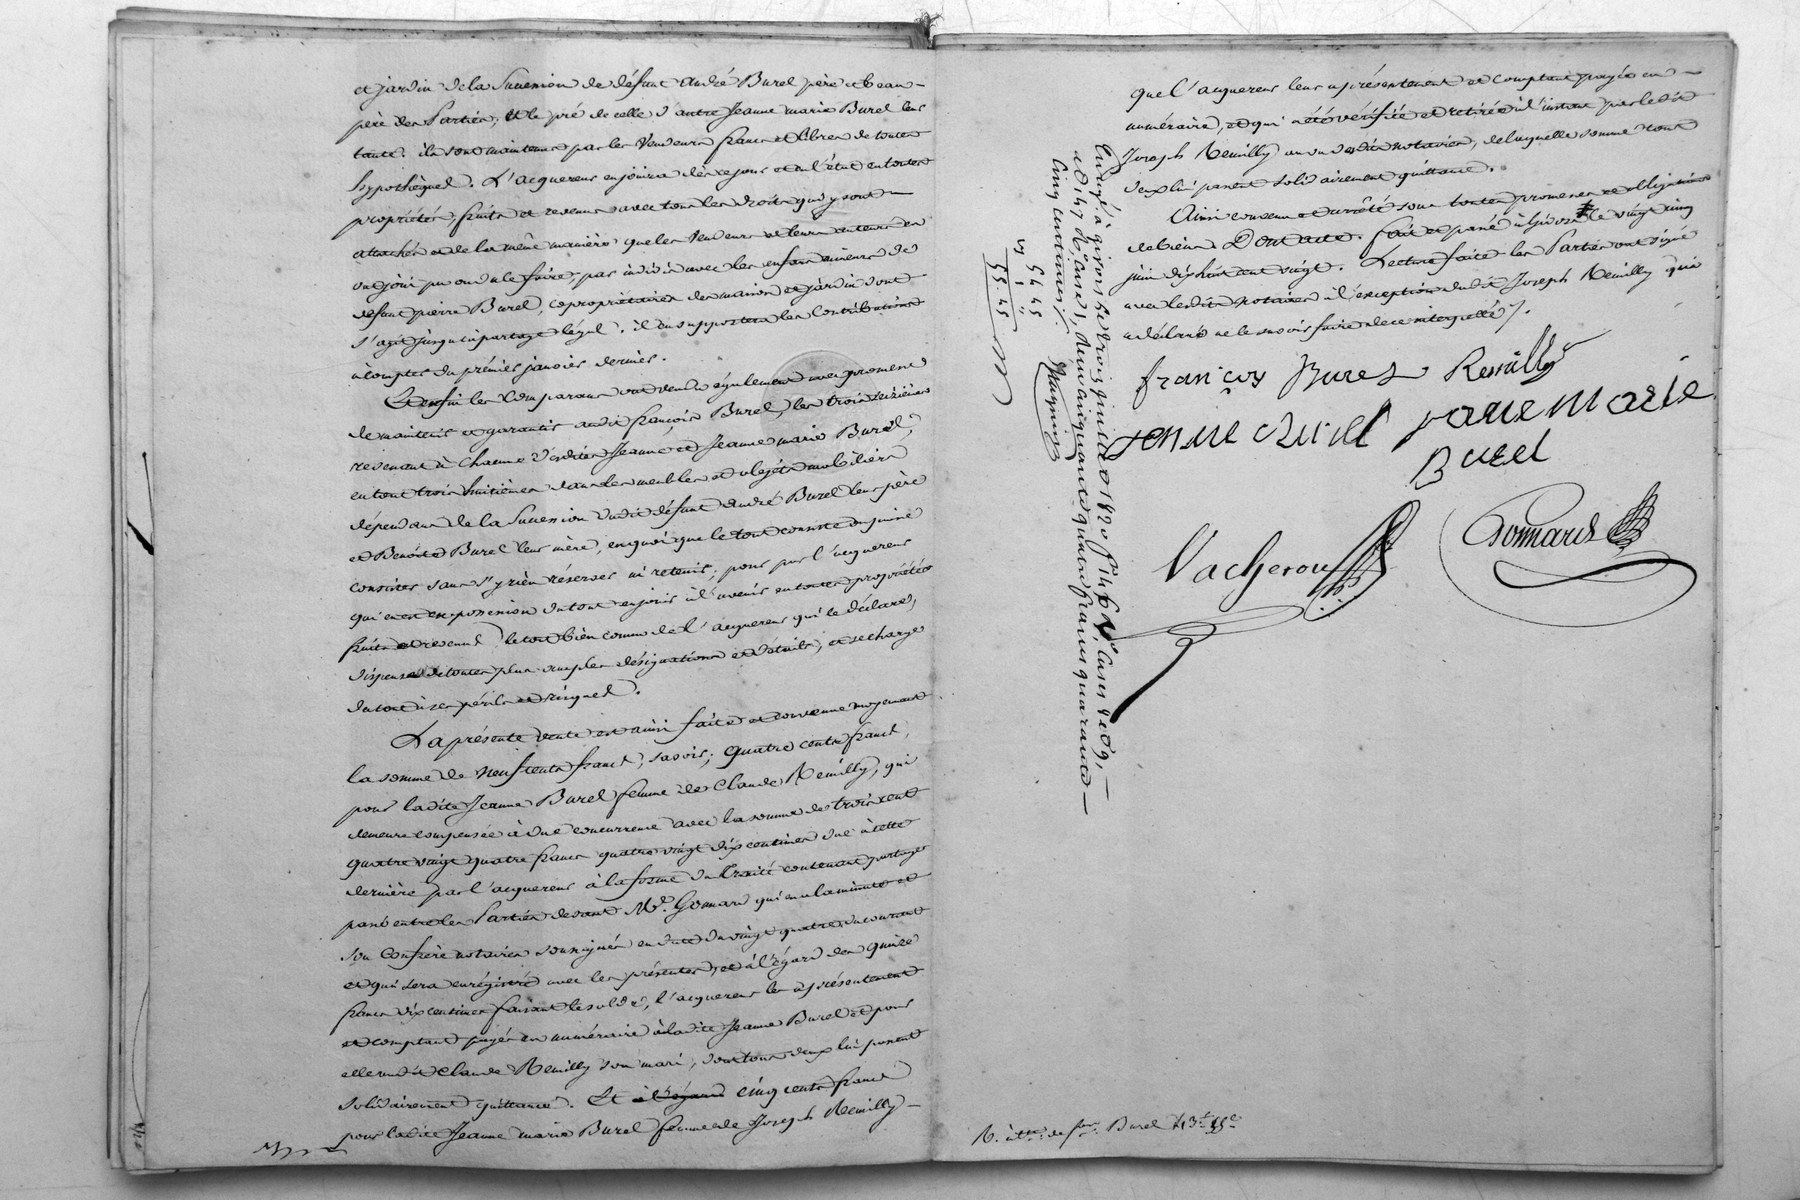 et jardin de la Succession de défunt André Burel père et beau-
père des Parties, et le pré de celle d'autre Jeanne marie Burel leur
tante. ils sont maintenus par les Vendeurs francs et libres de toutes
hypothèques. L'acquereur en jouira dès ce jour et en l'état en toutes
propriétés, fruits et revenus avec tous les droits qui y sont
attachés et de la même manière que les Vendeurs et leurs auteurs en
ont joui pu ou du le faire, par indivis avec les enfans mineurs de
défunt pierre Burel, copropriétaires des maison et jardin dont
s'agit jusqu'à partage légal. il en supportera les Contributions
à compter du prémier janvier dernier.
Et enfin les Comparans ont vendu également avec promesse
de maintenir et garantir audit françois Burel, les trois seizièmes
revenant à chacune desdites Jeanne et Jeanne marie Burel,
en tout trois huitièmes dans les meubles et objets mobiliers
dépendans de la Succession dudit défunt André Burel leur père
et Benoite Burel leur mère, en quoi que le tout consiste ou puisse
consister sans s'y rien réserver ni retenir; pour par l'acquereur
qui en est en possession du tout en jouir à l'avenir en toutes propriétés
fruits et revenus le tout bien connu de l'acquereur qui le déclare,
dispense de toutes plus amples désignations et détails, et se charge
du tout à ses périls et risques.
La présente vente est ainsi faite et convenue moyennant
la somme de neuf cents francs, savoir; quatre cents francs,
pour ladite Jeanne Burel femme de Claude Remilly, qui
demeure compensée à due concurrence avec la somme de trois cent
quatre vingt quatre francs quatre vingt dix centimes due à cette
dernière par l'acquereur à la forme du Traité contenant partage
passé entre les Parties devant Me. Gonnard qui en a la minute et
son Confrère notaires soussignés en date du vingt quatre du courant
et qui sera enrégistré avec les présentes, et à l'égard des quinze
francs dix centimes faisant le solde, l'acquereur les a présentement
et comptant payés en numéraire à ladite Jeanne Burel et pour
elle audit Claude Remilly son mari, dont tous deux lui passent
solidairement quittance. Et à l'égard cinq cents francs
pour ladite Jeanne marie Burel femme de Joseph Remilly
que l'acquereur leur a présentement et comptant payée en
numéraire, et qui a été vérifiée et retirée à l'instant par ledit
Joseph Remilly au vu desdits notaires, de laquelle somme tous
deux lui passent solidairement quittance.
Ainsi convenu et arrêté sous toutes promesses et obligations
de biens Dont acte. fait et passé à Givors le vingt cinq
juin dix huit cent vingt. Lecture faite les Parties ont signé
avec lesdits notaires à l'exception dudit Joseph Remilly qui
a déclaré ne le savoir faire de ce interpellé.
françois Burel Remilly
Jenne Burel Jane Marie
Burel
Vacheron Gonnard
Enregé. à givors le trois juillet 1820 fo. 146 Vo. Cases 4 et 9,
et 147 Ro. case 1, Reçu cinquante quatre francs quarante
Cinq centimes.
54.45
1
55.45